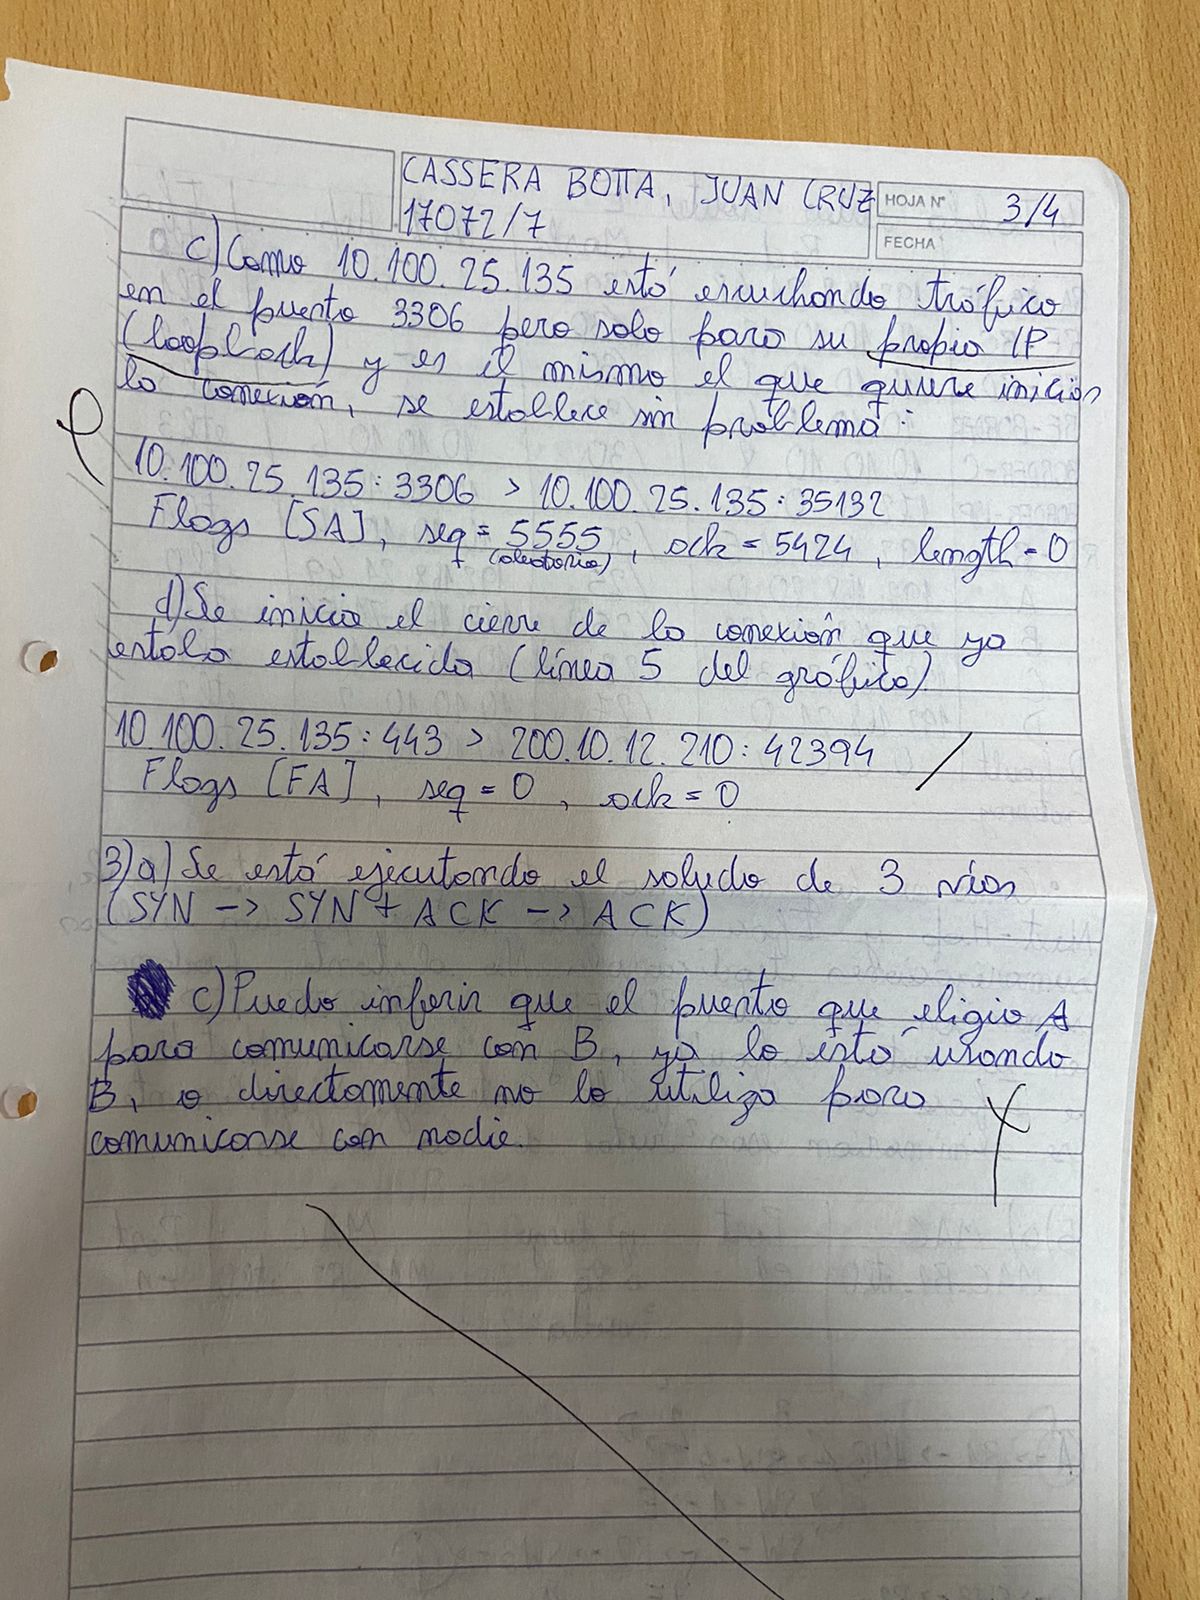 CASSERA BOTTA, JUAN CRUZ
17072/7
HOJA N° 3/4
FECHA
c) Como 10.100.25.135 está escuchando tráfico
en el puerto 3306 pero solo para su propia IP
(loopback) y es él mismo el que quiere iniciar
la conexión, se establece sin problema:
10.100.25.135:3306 > 10.100.25.135:35132
Flags [SA], seq = 5555, ack = 5424, length = 0
(aleatorio)
d) Se inicia el cierre de la conexión que ya
estaba establecida (línea 5 del gráfico)
10.100.25.135:443 > 200.10.12.210:42394
Flags [FA], seq = 0, ack = 0
3) a) Se está ejecutando el saludo de 3 vías
(SYN -> SYN + ACK -> ACK)
c) Puedo inferir que el puerto que eligio A
para comunicarse con B, ya lo está usando
B, o directamente no lo utiliza para
comunicarse con nadie.